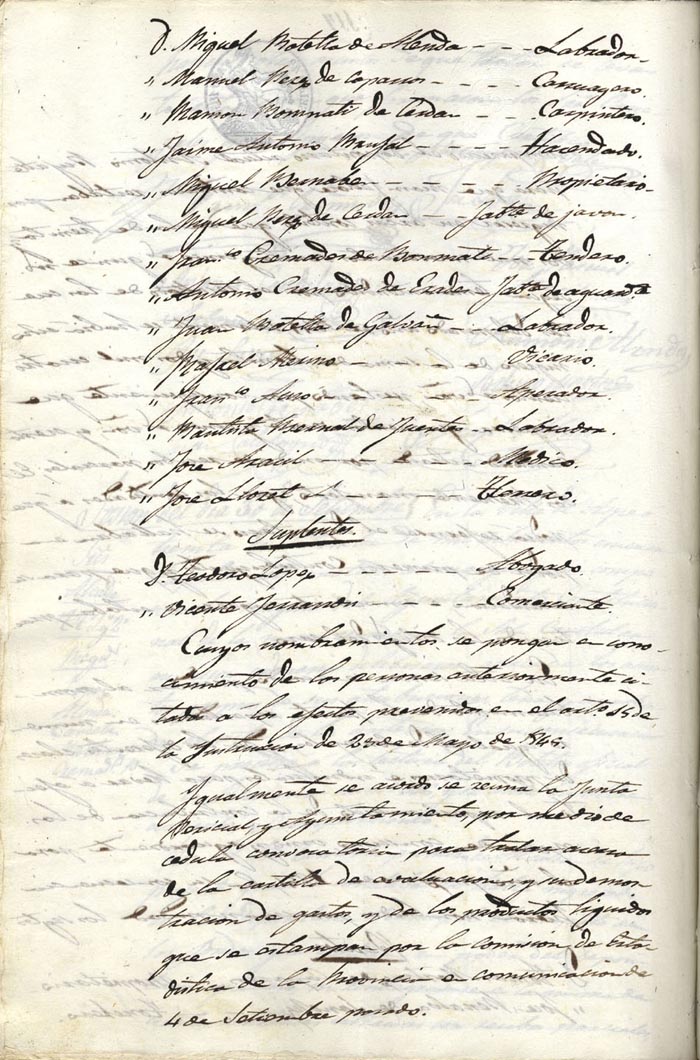 D. Miguel Botella de Menda - - - Labrador.
" Manuel Perez de Coparros - - - - Carruagero.
" Ramon Bonmati de Cerdan - - - - Carpintero.
" Jaime Antonio - - - - Hacendado.
" Miguel Bernabeu - - - - - Propietario.
" Miguel Perez de Cerdan - - Fabte. de javon.
" Franco. Cremades de Bonmati - - Tendero.
" Antonio Cremades de - Fabte. de aguardte.
" Juan Botella de Galvañ - - - Labrador.
" Rafael - - - - - Vicario.
" Franco. - - - - - Aperador.
" Bautista Bernal de Fuentes - - Labrador.
" Jose Aracil - - - - - Medico.
" Jose Lloret - - - - Herrero.
Suplentes.
D. Teodoro Lopez - - - - - Abogado.
" Vicente Ferrandis - - - - Comerciante.
Cuyos nombramientos se pongan en cono-
cimiento de las personas anteriormente ci-
tadas a los efectos prevenidos en el arto. 15 de
la Instruccion de 23 de Mayo de 1845.
Igualmente se acordó se reuna la Junta
Pericial, y Ayuntamiento, por medio de
cedula convocatoria para tratar acerca
de la cartilla de evaluacion, y su demos-
tracion de gastos, y de los productos liquidos
que se estampan por la comision de Esta-
distica de la Provincia en comunicacion de
4 de Setiembre pasado.